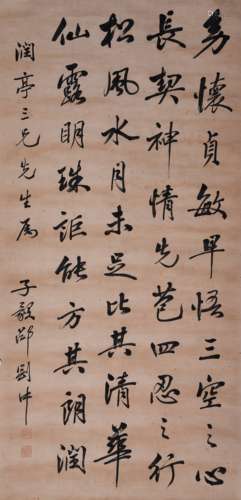 幼懷貞敏早悟三空之心
長契神情先苞四忍之行
松風水月未足比其清華
仙露明珠詎能方其朗潤
潤亭三兄先生属 子毅邵